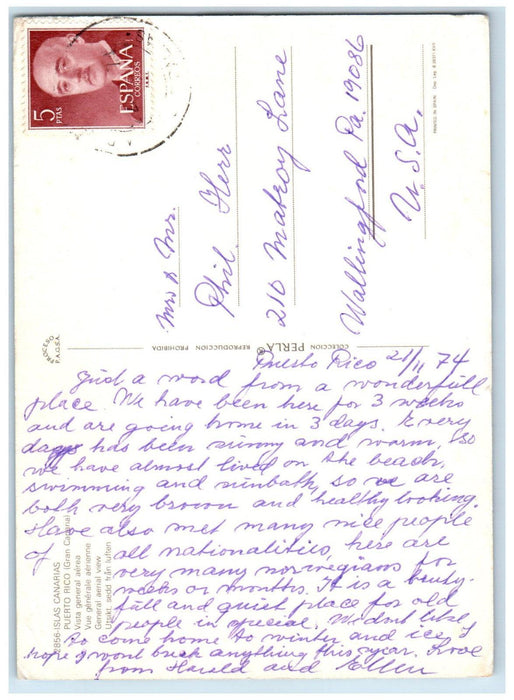 5
PTAS
ESPAÑA
CORREOS
PRINTED IN SPAIN
Mrs & Mr.
Phil. Herr
210 Matroy Lane
Wallingford Pa. 19086
U.S.A.
PROCESO
P.A.G.S.A.
REPRODUCCION PROHIBIDA
COLECCION PERLA
2856-ISLAS CANARIAS
PUERTO RICO (Gran Canaria)
Vista general aérea
Vue générale aérienne
General aerial view
Utsikt, sedd från luften
Puesto Rico 21/11 74
Just a word from a wonderfull
place. We have been here for 3 weeks
and are going home in 3 days. Every
day has been sunny and warm, so
we have almost lived on the beach,
swimming and sunbath, so we are
both very brown and healthy looking.
Have also met many nice people
of all nationalities, here are
very many norwegians for
weeks or months. It is a beuty-
full and quiet place for old
people in special. We dont like
to come home to winter and ice, I
hope I wont break anything this year. Love
from Harald and Ellen